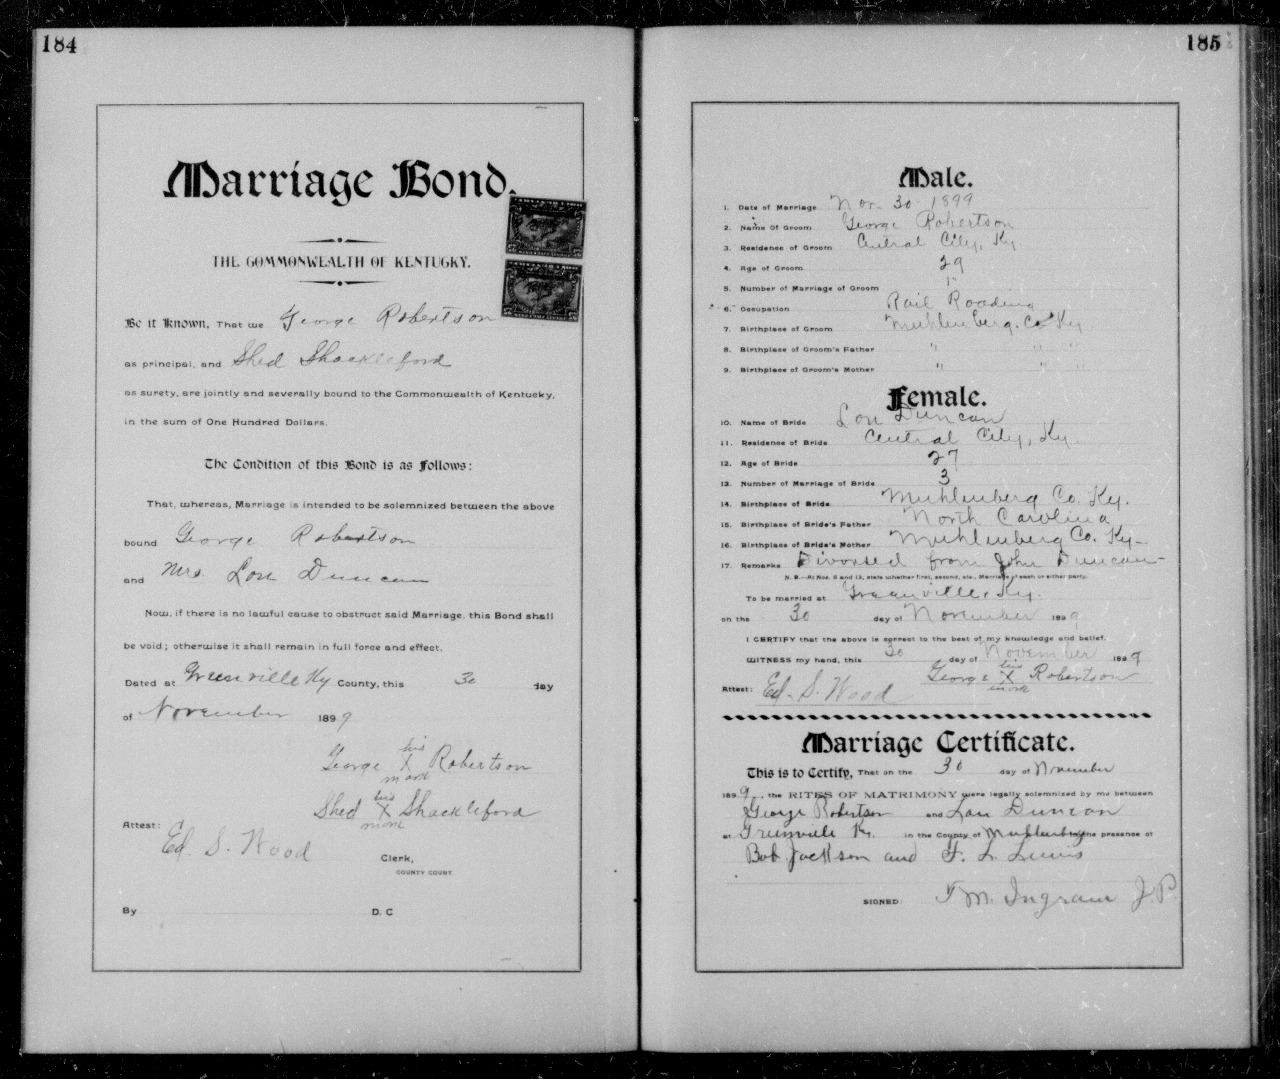 184
Marriage Bond.
THE COMMONWEALTH OF KENTUCKY.
Be it Known, That we George Robertson
as principal, and Shed Shackleford
as surety, are jointly and severally bound to the Commonwealth of Kentucky,
in the sum of One Hundred Dollars.
The Condition of this Bond is as Follows:
That, whereas, Marriage is intended to be solemnized between the above
bound George Robertson
and Mrs. Lou Duncan
Now, if there is no lawful cause to obstruct said Marriage, this Bond shall
be void; otherwise it shall remain in full force and effect.
Dated at Greenville Ky County, this 30 day
of November 1899
his
George X Robertson
mark
his
Shed X Shackleford
mark
Attest:
Ed. S. Wood
Clerk,
COUNTY COURT
By D. C
185
Male.
1. Date of Marriage Nov. 30 1899
2. Name Of Groom George Robertson
3. Residence of Groom Central City, Ky.
4. Age of Groom 29
5. Number of Marriage of Groom 1
6. Occupation Rail Roading
7. Birthplace of Groom Muhlenberg. Co Ky
8. Birthplace of Groom's Father " " "
9. Birthplace of Groom's Mother " " "
Female.
10. Name of Bride Lou Duncan
11. Residence of Bride Central City, Ky.
12. Age of Bride 27
13. Number of Marriage of Bride 3
14. Birthplace of Bride Muhlenberg Co. Ky.
15. Birthplace of Bride's Father North Carolina
16. Birthplace of Bride's Mother Muhlenberg Co. Ky-
17. Remarks Divorsed from John Duncan-
N. B.—At Nos. 5 and 13, state whether first, second, etc., Marriage of each or either party.
To be married at Greenville, Ky.
on the 30 day of November 1899
I CERTIFY that the above is correct to the best of my knowledge and belief.
WITNESS my hand, this 30 day of November 1899
his
George X Robertson
mark
Attest: Ed. S. Wood
Marriage Certificate.
This is to Certify, That on the 30 day of November
1899, the RITES OF MATRIMONY were legally solemnized by me between
George Robertson and Lou Duncan
at Greenville Ky. in the County of Muhlenberg the presence of
Bob Jackson and F. L. Lewis
SIGNED: M. Ingram J.P.